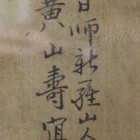 日師新羅山人
黄山壽寫